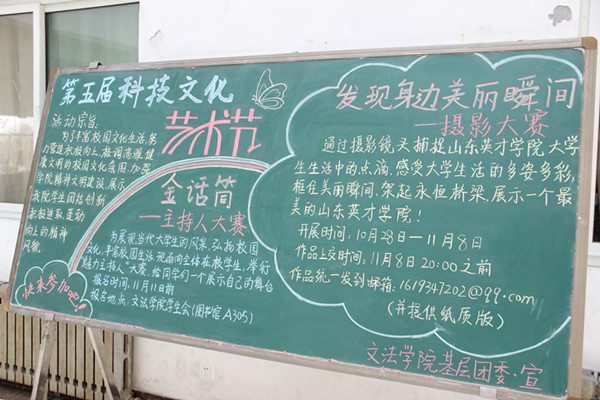 第五届科技文化
艺术节
活动宗旨:
为了丰富校园文化生活,第
为营造永校向上、格调高雅健
康文明的校园文化氛围,加强
学院精神文明建设,展示
我院学生团结创新
积极进取、蓬勃
向上的精神
风貌.
快来参加吧!!
金话筒
—主持人大赛
为展现当代大学生的风采,弘扬校园
文化,丰富校园生活,现面向全体在校学生,举行
"魅力主持人"大赛,给同学们一个展示自己的舞台
报名时间:11月11日前
报名地点:文法学院学生会(图书馆A305)
发现身边美丽瞬间
—摄影大赛
通过摄影镜头捕捉山东英才学院大学
生生活中的点滴,感受大学生活的多姿多彩,
框住美丽瞬间,架起永恒桥梁,展示一个最
美的山东英才学院!
开展时间:10月28日—11月8日
作品上交时间:11月8日20:00之前
作品统一发到邮箱:1619347202@qq.com
(并提供纸质版)
文法学院基层团委·宣